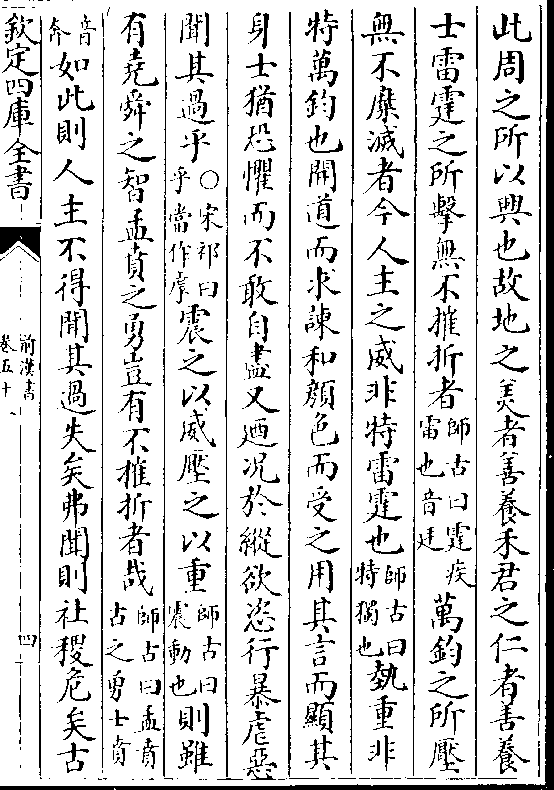 此周之所以興也故地之羙者善養禾君之仁者善養
士雷霆之所擊無不摧折者師古曰霆疾雷也音廷萬鈞之所壓
無不糜滅者今人主之威非特雷霆也師古曰特獨也埶重非
特萬鈞也開道而求諫和顔色而受之用其言而顯其
身士猶恐懼而不敢自盡又迺况於縱欲恣行暴虐惡
聞其過乎○宋祁曰乎當作虖震之以威壓之以重師古曰震動也則雖
有堯舜之智孟賁之勇豈有不摧折者哉師古曰孟賁古之勇士賁
音奔如此則人主不得聞其過失矣弗聞則社稷危矣古
欽定四庫全書
前漢書
卷五十一
四